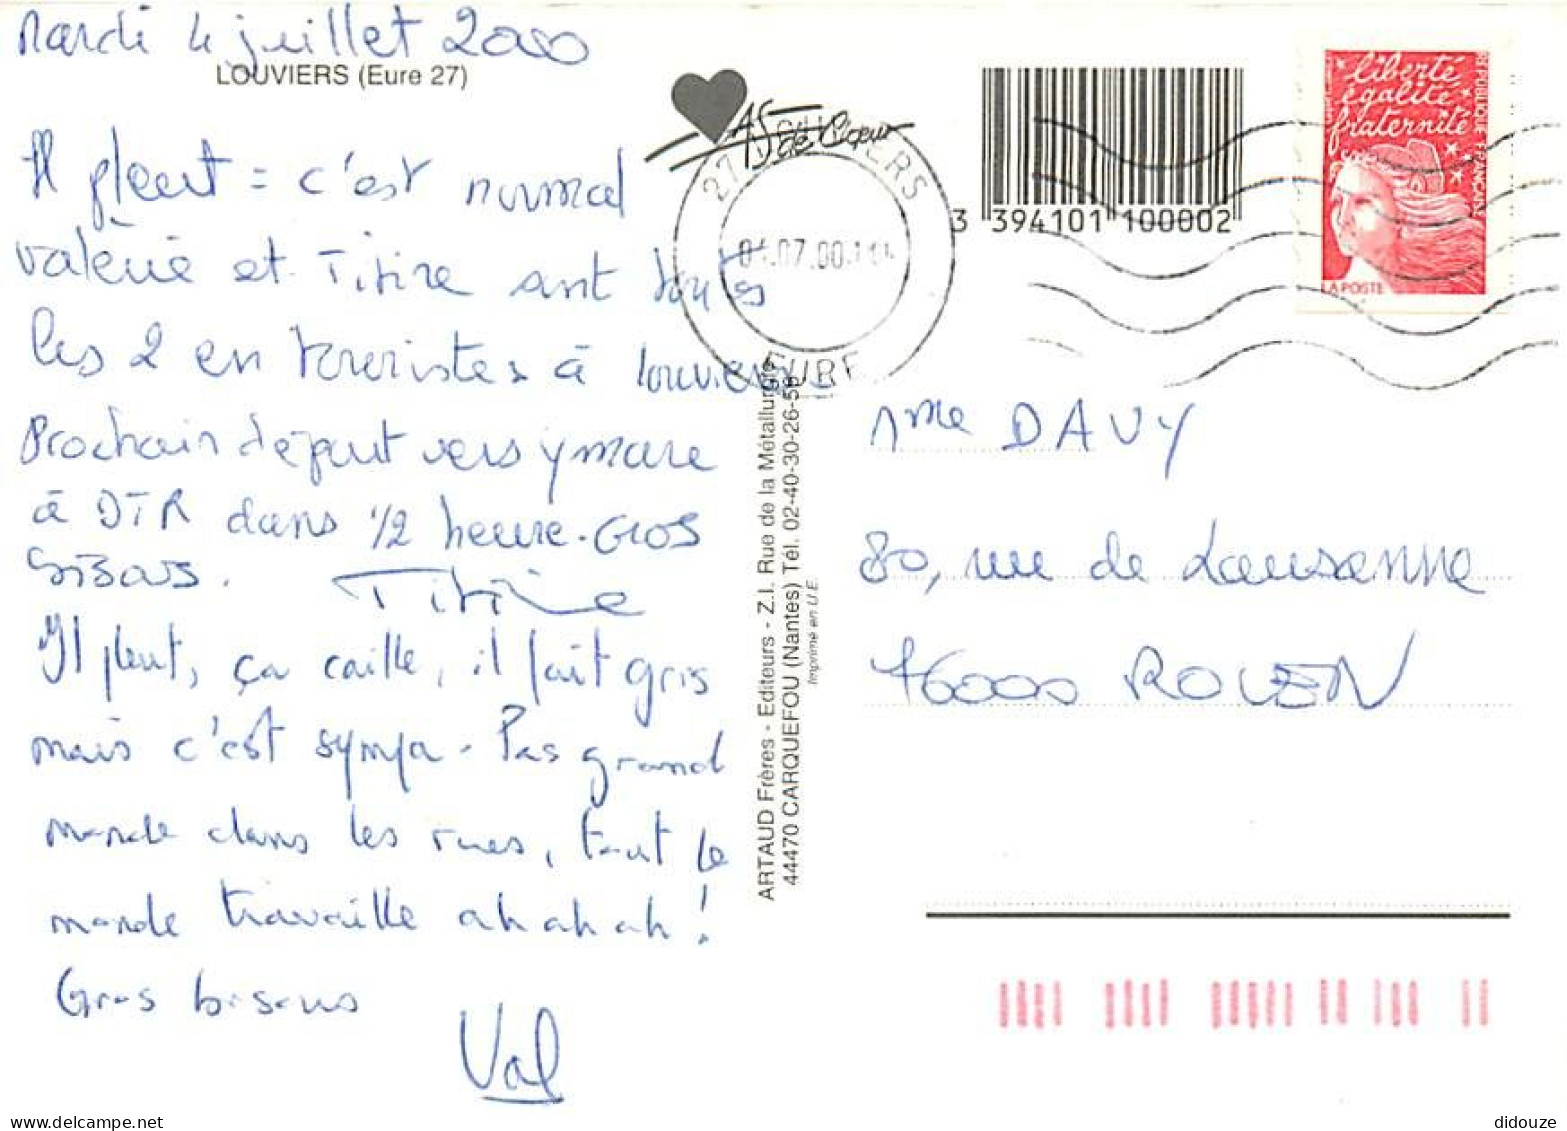 Mardi 4 juillet 2000
LOUVIERS (Eure 27)
Il pleut = c'est normal
Valérie et Titine sont toutes
les 2 en touristes à Louviers
Prochain départ vers Ymare
à DTR dans 1/2 heure. Gros
BISOUS.
Titine
Il pleut, ça caille, il fait gris
mais c'est sympa. Pas grand
monde dans les rues, tout le
monde travaille ah ah ah !
Gros bisous
Val
ARTAUD Frères - Editeurs - Z.I. Rue de la Métallurgie
44470 CARQUEFOU (Nantes) Tél. 02-40-30-26-59
Imprimé en U.E.
AS de Cœur
27 LOUVIERS
EURE
3 394101 100002
liberté
égalité
fraternité
REPUBLIQUE FRANÇAISE
LA POSTE
Mme DAVY
80, rue de Lausanne
76000 ROUEN
didouze